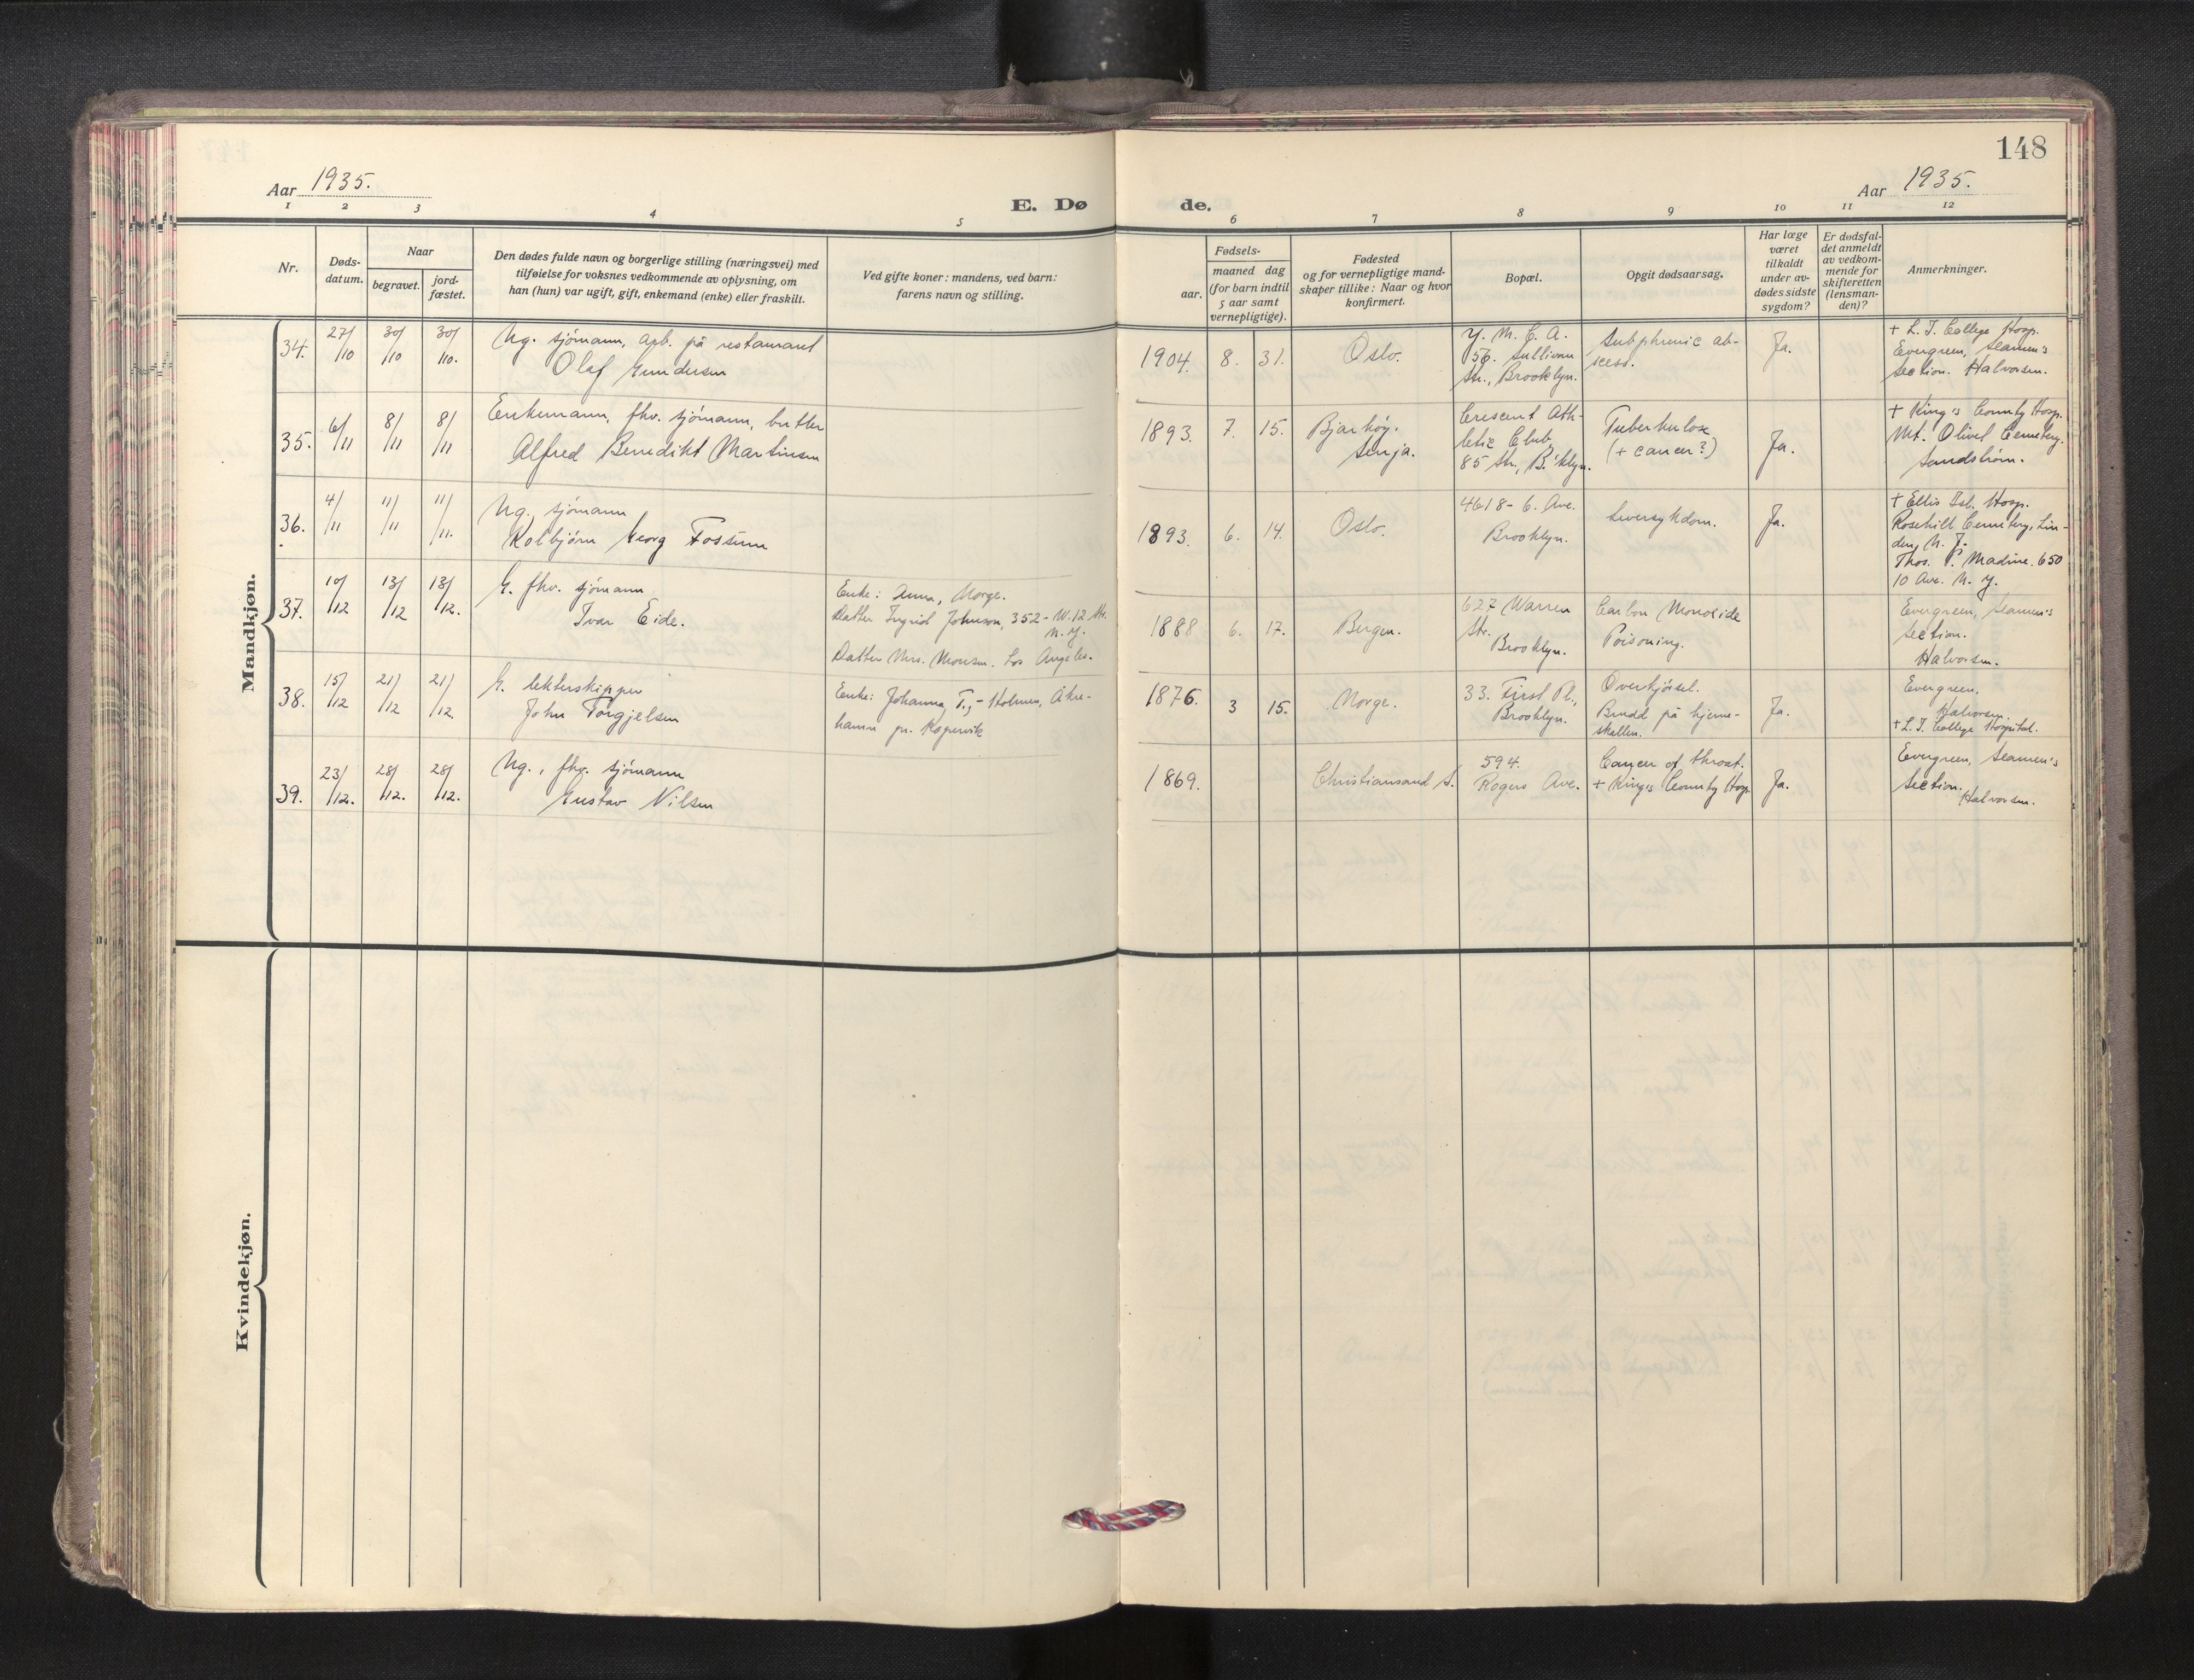 148
Aar 1935.
E. Døde.
Aar 1935.
1 2 3 4 5 6 7 8 9 10 11 12
Nr.
Døds-
datum.
Naar
begravet.
jord-
fæstet.
Den dødes fulde navn og borgerlige stilling (næringsvei) med
tilføielse for voksnes vedkommende av oplysning, om
han (hun) var ugift, gift, enkemand (enke) eller fraskilt.
Ved gifte koner: mandens, ved barn:
farens navn og stilling.
Fødsels-
aar.
maaned dag
(for barn indtil
5 aar samt
vernepligtige).
Fødested
og for vernepligtige mand-
skaper tillike: Naar og hvor
konfirmert.
Bopæl.
Opgit dødsaarsag.
Har læge
været
tilkaldt
under av-
dødes sidste
sygdom?
Er dødsfal-
det anmeldt
av vedkom-
mende for
skifteretten
(lensman-
den)?
Anmerkninger.
Mandkjøn.
34. 27/10 30/10 30/10.
Ug. sjömann, arb. på restaurant
Olaf Gundersen
1904. 8. 31. Oslo.
Y. M. C. A.
56. Sullivan
Str., Brooklyn.
Subphrenic ab-
scess.
Ja.
+ L. I. College Hosp.
Evergreen, Seamen's
Section. Halvorsen.
35. 6/11 8/11 8/11
Enkemann, fhv. sjömann, butler
Alfred Benedikt Martinsen
1893. 7. 15.
Bjarköy.
Senja.
Crescent Ath-
letic Club,
85 Str., B'klyn.
Tuberkulose
(+ cancer?)
Ja.
+ King's County Hosp.
Mt. Olivet Cemetery.
Sandström.
36. 4/11 11/11 11/11.
Ug., sjömann
Kolbjörn Georg Fossum
1893. 6. 14. Oslo.
4618 - 6. Ave.
Brooklyn.
Leversykdom.
Ja.
+ Ellis Isl. Hosp.
Rosehill Cemetery, Lin-
den, N. J.
Thos. P. Madine. 650
10 Ave. N. Y.
37. 10/12 13/12 13/12.
G. fhv. sjömann
Ivar Eide.
Enke: Anna, Norge.
Datter Ingrid Johnson, 352 - W. 12 Str.
N. Y.
Datter Mrs. Monsen. Los Angeles.
1888 6. 17. Bergen.
627 Warren
Str.
Brooklyn.
Carbon Monoxide
Poisoning.
Evergreen, Seamen's
Section.
Halvorsen.
38. 15/12 21/12 21/12.
G. lekterskipper
John Torgjelsen
Enke: Johanna T., - Holmen, Åkre-
hamn pr. Kopervik
1876. 3 15. Norge.
33. First Pl.,
Brooklyn.
Overkjörsel.
Brudd på hjerne-
skallen.
Ja.
Evergreen.
Halvorsen.
+ L. I. College Hospital.
39. 23/12. 28/12. 28/12.
Ug., fhv. sjömann
Gustav Nilsen
1869. Christiansand S.
594.
Rogers Ave.
Cancer of throat.
+ King's County Hosp.
Ja.
Evergreen, Seamen's
Section.
Halvorsen.
Kvindekjøn.